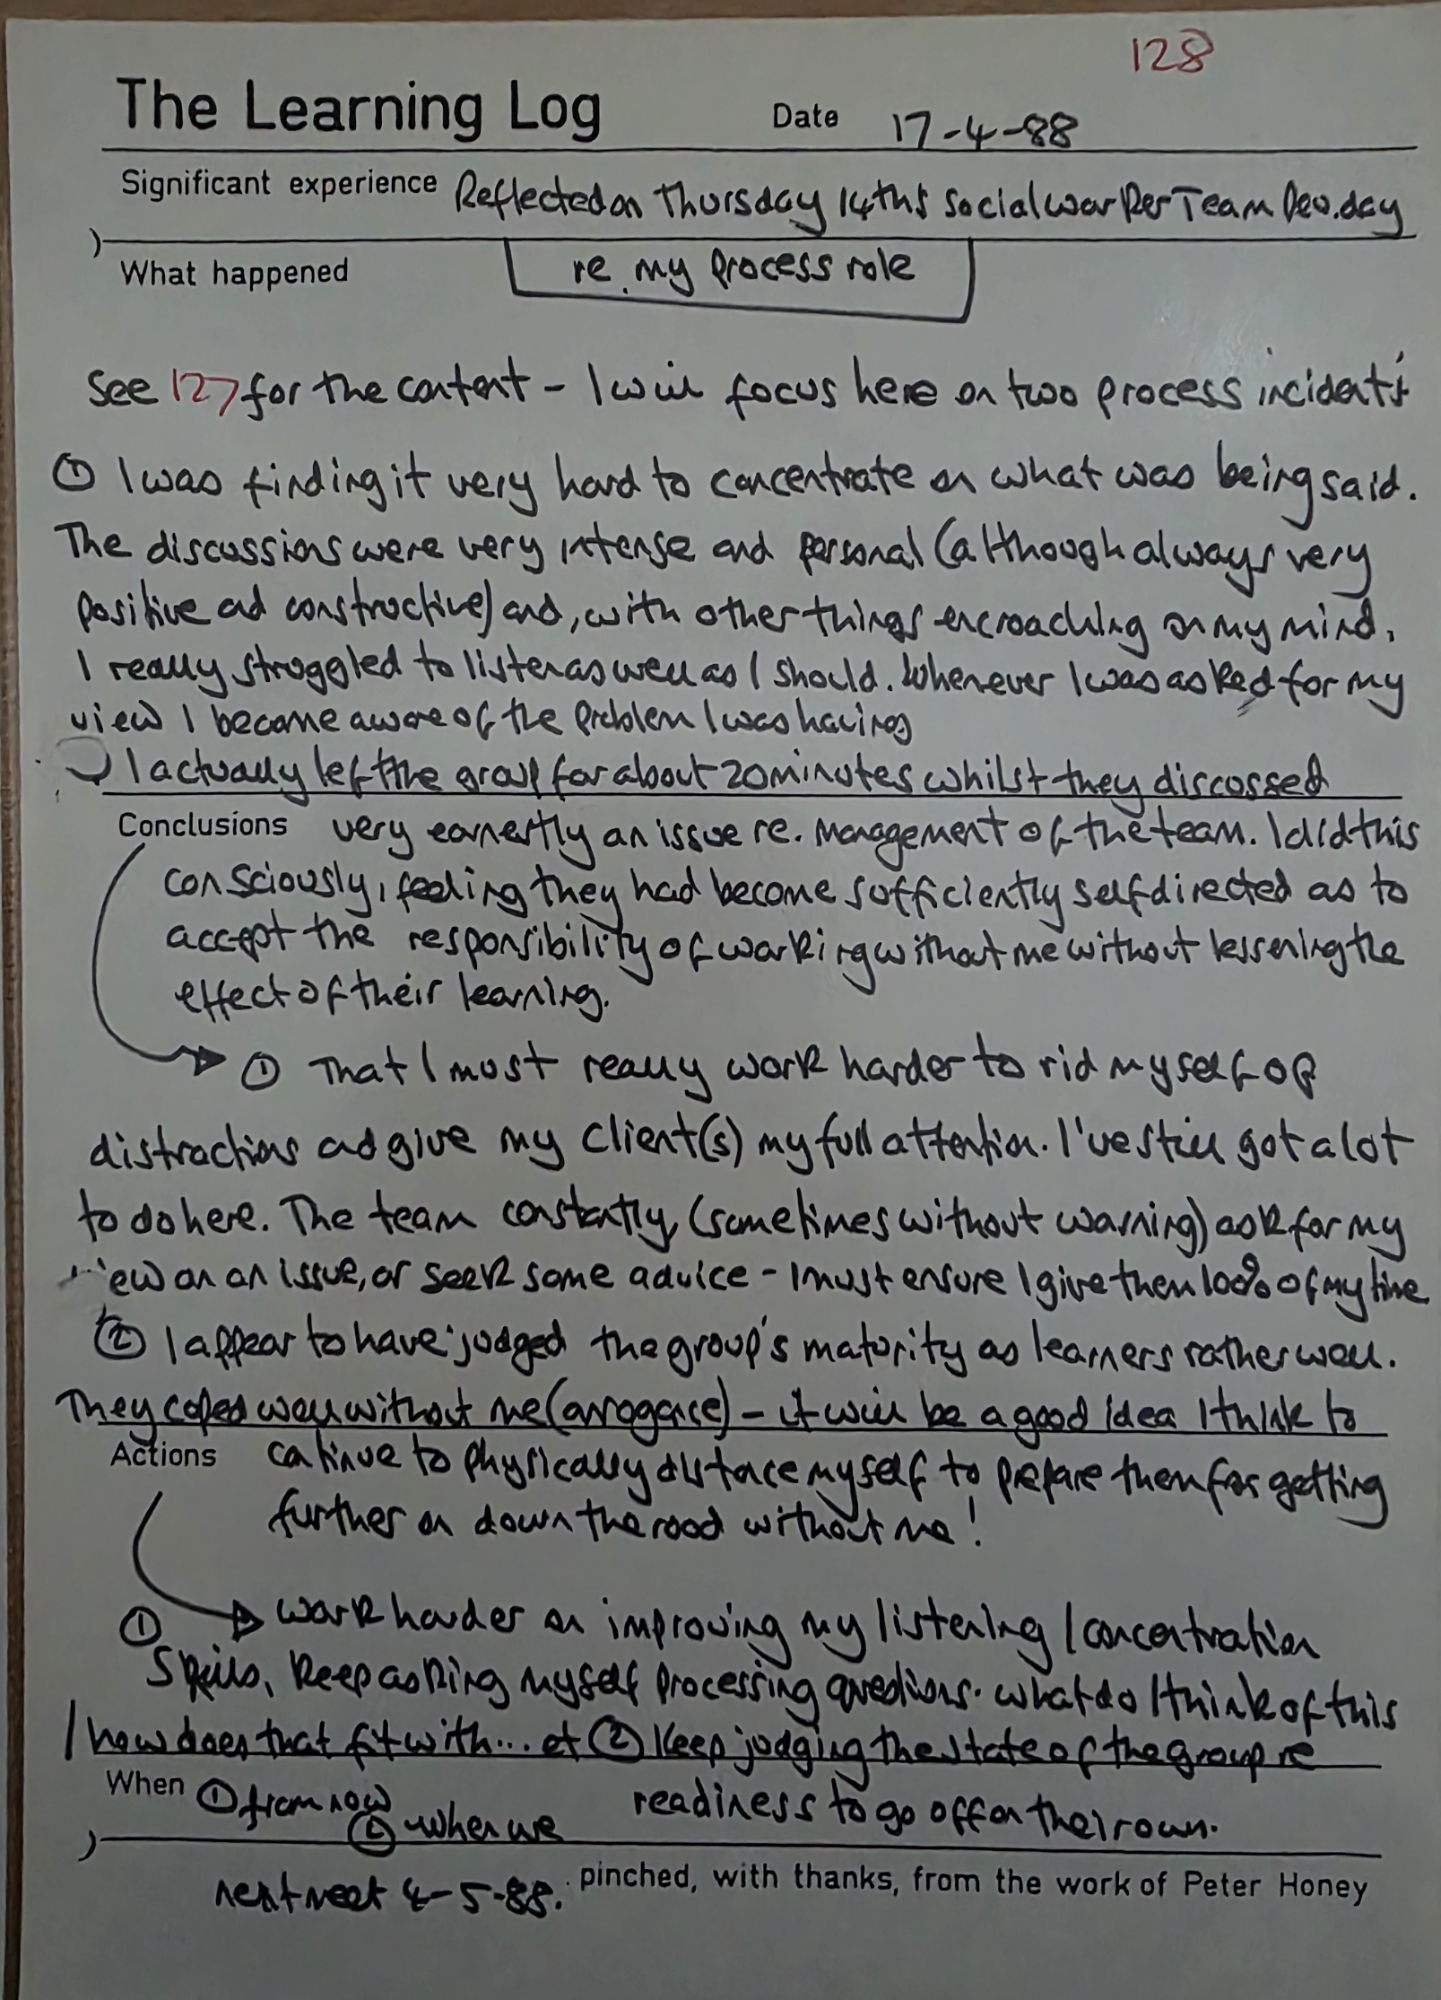 128
The Learning Log Date 17-4-88
Significant experience Reflected on Thursday 14th's Social Worker Team Dev. day
What happened re. my process role
See 127 for the content - I will focus here on two process incidents
① I was finding it very hard to concentrate on what was being said.
The discussions were very intense and personal (although always very
positive and constructive) and, with other things encroaching on my mind,
I really struggled to listen as well as I should. Whenever I was asked for my
view I became aware of the problem I was having
I actually left the group for about 20 minutes whilst they discussed
Conclusions very earnestly an issue re. management of the team. I did this
consciously, feeling they had become sufficiently self directed as to
accept the responsibility of working without me without lessening the
effect of their learning.
① That I must really work harder to rid myself of
distractions and give my client(s) my full attention. I've still got a lot
to do here. The team constantly, (sometimes without warning) ask for my
view on an issue, or seek some advice - I must ensure I give them 100% of my time
② I appear to have judged the group's maturity as learners rather well.
They coped well without me (arrogance) - it will be a good idea I think to
Actions continue to physically distance myself to prepare them for getting
further on down the road without me!
① work harder on improving my listening / concentration
skills, keep asking myself processing questions. what do I think of this
/ how does that fit with... et ② Keep judging the state of the group re
When ① from now readiness to go off on their own.
② when we
next meet 4-5-88. pinched, with thanks, from the work of Peter Honey